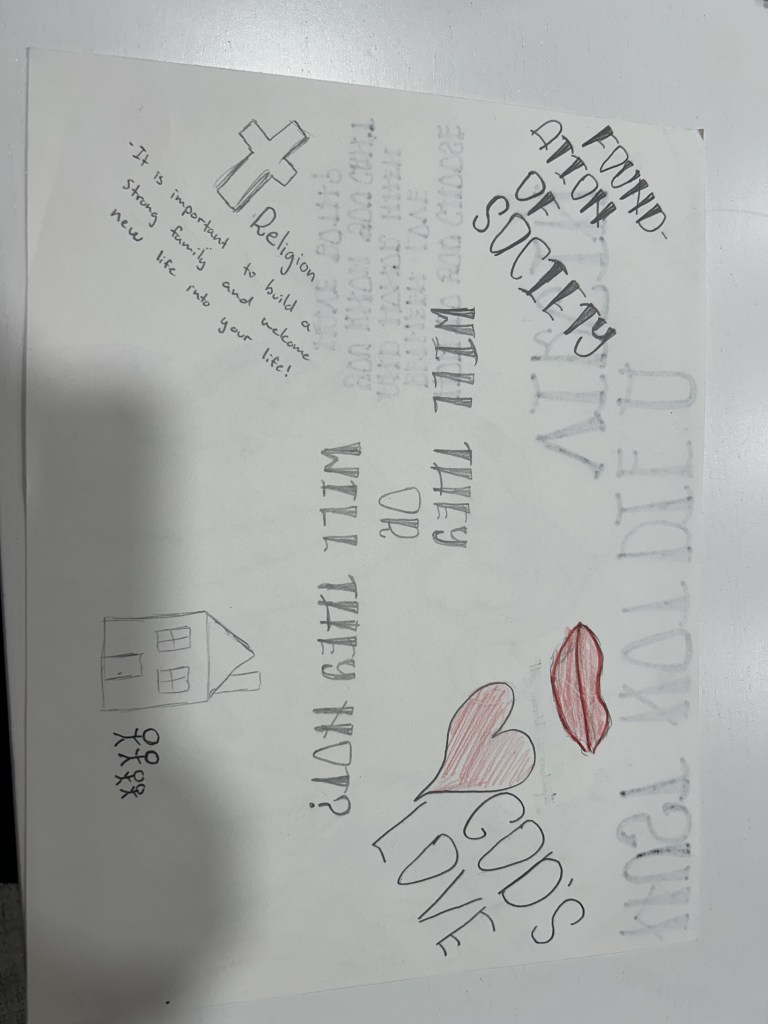 FOUND-
ATION
OF
SOCIETY
GOD'S
LOVE
WILL THEY
OR
WILL THEY NOT?
Religion
- It is important to build a
strong family and welcome
new life into your life!